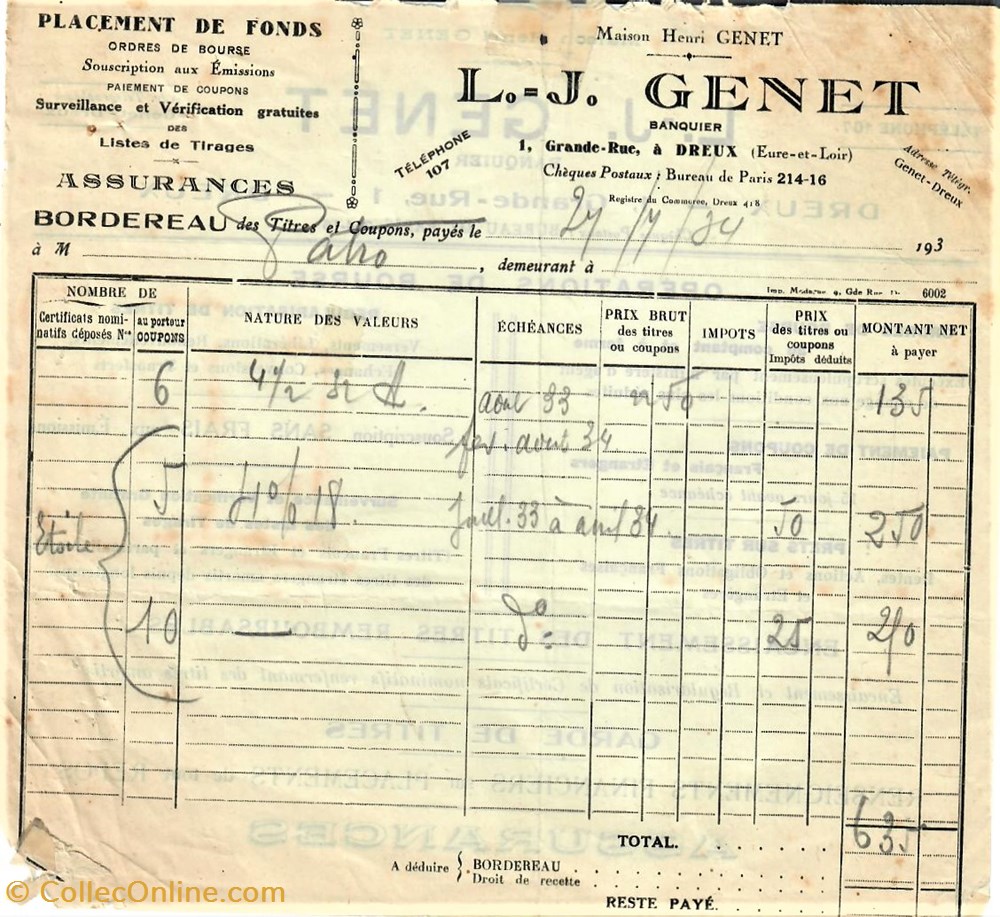 PLACEMENT DE FONDS
ORDRES DE BOURSE
Souscription aux Émissions
PAIEMENT DE COUPONS
Surveillance et Vérification gratuites
DES
Listes de Tirages
ASSURANCES
Maison Henri GENET
L.=J. GENET
BANQUIER
TÉLÉPHONE 107
1, Grande-Rue, à DREUX (Eure-et-Loir)
Chèques Postaux : Bureau de Paris 214-16
Registre du Commerce, Dreux 418
Adresse Télégr. Genet-Dreux
BORDEREAU des Titres et Coupons, payés le 27/7/34 193
à M , demeurant à
6002
NOMBRE DE
Certificats nominatifs déposés Nos
au porteur COUPONS
NATURE DES VALEURS
ÉCHÉANCES
PRIX BRUT des titres ou coupons
IMPOTS
PRIX des titres ou coupons Impôts déduits
MONTANT NET à payer
6 4 1/2 32 A. août 33 22 50 135
août 34
5 18 juil. 33 à avril 34 50 250
Etoile
10 — do 25 250
TOTAL. 635
A déduire BORDEREAU
Droit de recette
RESTE PAYÉ.
© CollecOnline.com